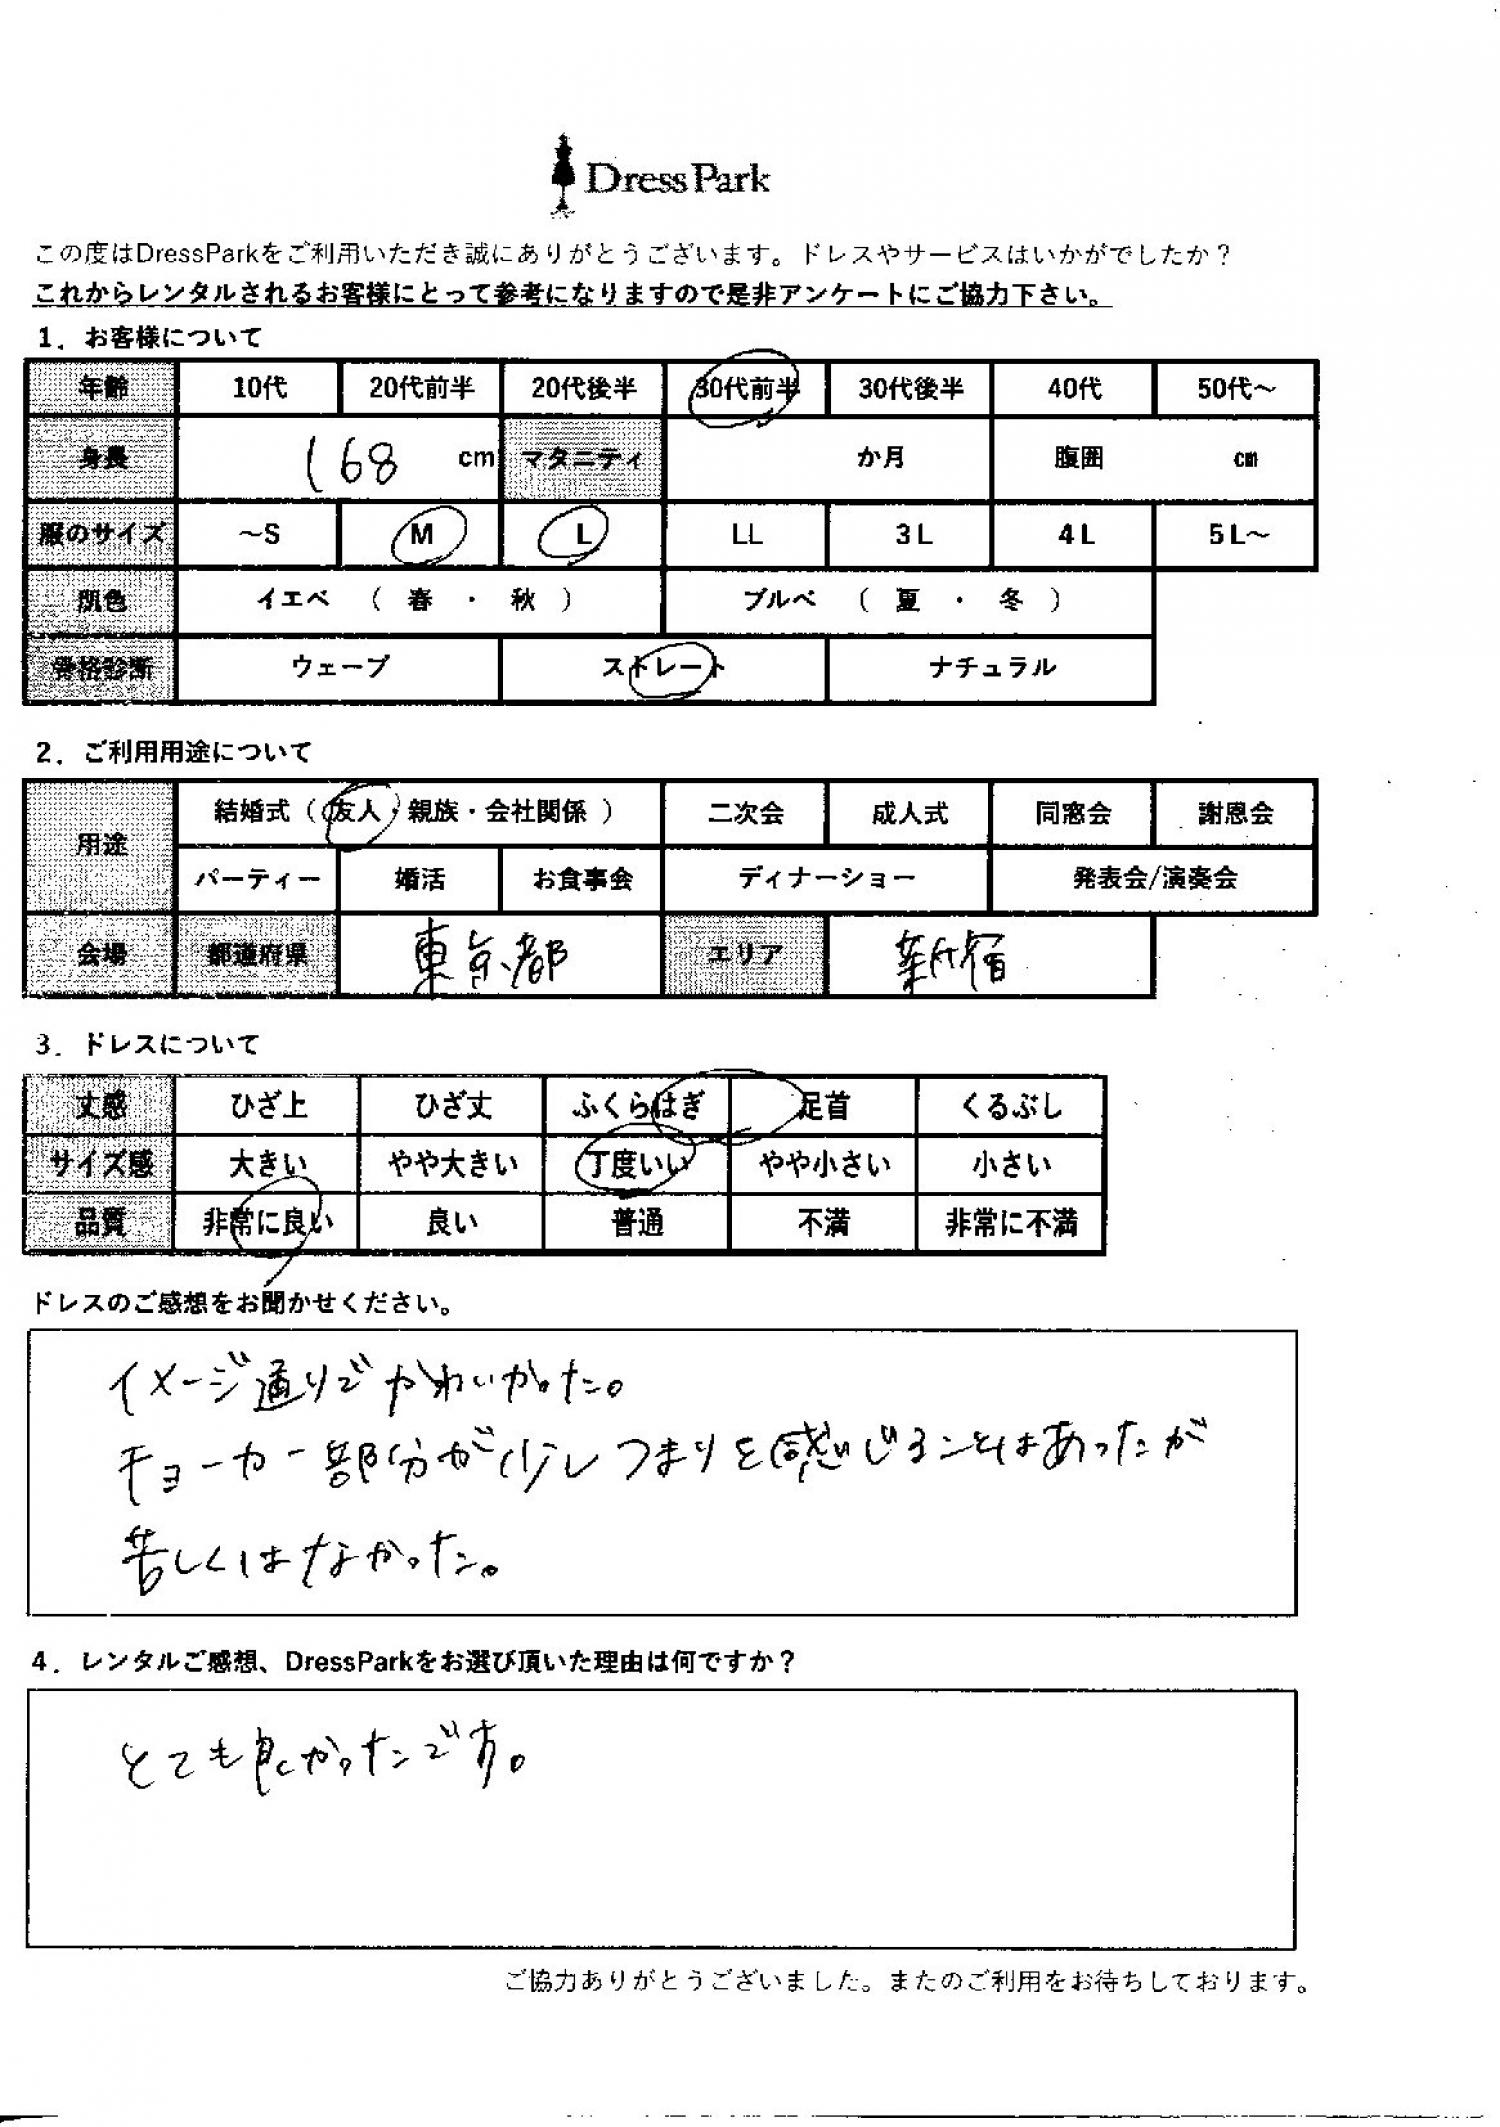 DressPark
この度はDressParkをご利用いただき誠にありがとうございます。ドレスやサービスはいかがでしたか？
これからレンタルされるお客様にとって参考になりますので是非アンケートにご協力下さい。
1．お客様について
年齢 10代 20代前半 20代後半 30代前半 30代後半 40代 50代～
身長 168 cm マタニティ か月 腹囲 cm
服のサイズ ～S M L LL 3L 4L 5L～
肌色 イエベ （ 春 ・ 秋 ） ブルベ （ 夏 ・ 冬 ）
骨格診断 ウェーブ ストレート ナチュラル
2．ご利用用途について
用途 結婚式（ 友人・親族・会社関係 ） 二次会 成人式 同窓会 謝恩会
パーティー 婚活 お食事会 ディナーショー 発表会/演奏会
会場 都道府県 東京都 エリア 新宿
3．ドレスについて
丈感 ひざ上 ひざ丈 ふくらはぎ 足首 くるぶし
サイズ感 大きい やや大きい 丁度いい やや小さい 小さい
品質 非常に良い 良い 普通 不満 非常に不満
ドレスのご感想をお聞かせください。
イメージ通りでかわいかった。
チョーカー部分が少しつまりを感じることはあったが
苦しくはなかった。
4．レンタルご感想、DressParkをお選び頂いた理由は何ですか？
とても良かったです。
ご協力ありがとうございました。またのご利用をお待ちしております。